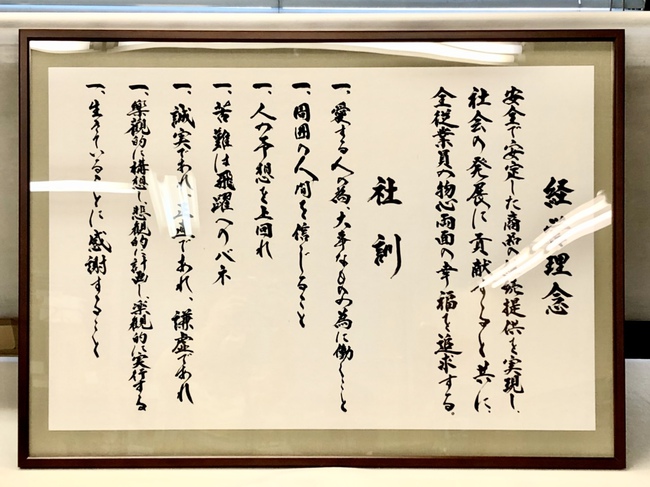 経営理念
安全で安定した商品の続提供を実現し、
社会の発展に貢献すると共に、
全従業員の物心両面の幸福を追求する。
社訓
一、愛する人の為、大事なものの為に働くこと
一、周囲の人間を信じること
一、人の予想を上回れ
一、苦難は飛躍へのバネ
一、誠実であれ、正直であれ、謙虚であれ
一、楽観的に構想し、悲観的に計画し、楽観的に実行する
一、生きていることに感謝すること